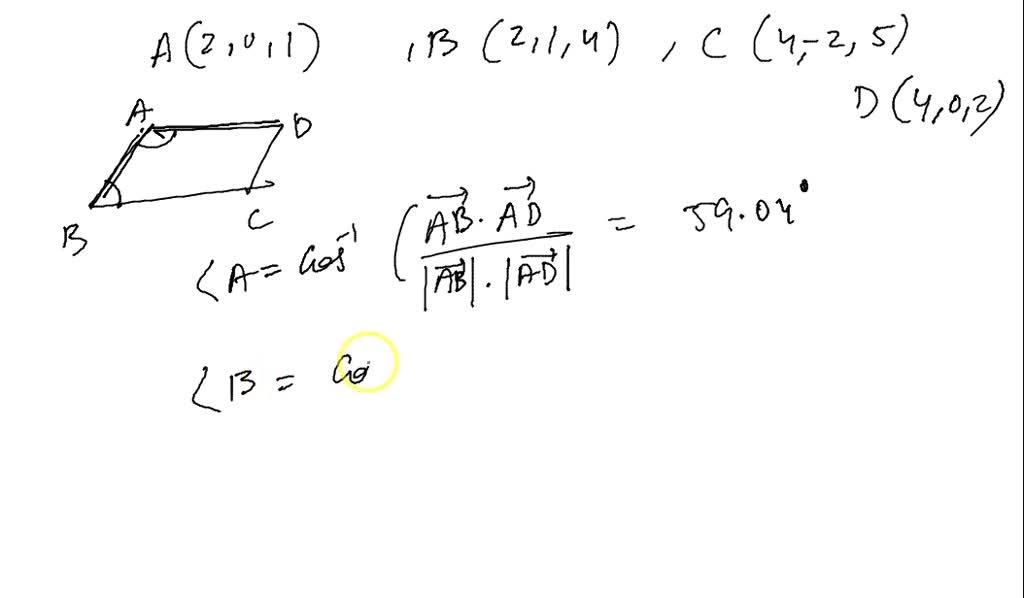 A(2,0,1) , B (2,1,4) , C (4,-2,5)
D (4,0,2)
A
D
B
C
∠A = Cos⁻¹ ( AB⃗ . AD⃗ / |AB⃗| . |AD⃗| = 59.04°
∠B = Co